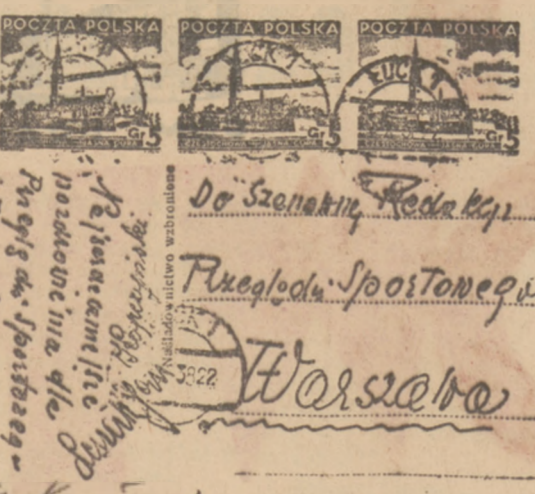 POCZTA POLSKA
POCZTA POLSKA
POCZTA POLSKA
ŁUCK 1
Gr 5
Gr 5
Gr 5
Do Szanownej Redakcji
Przeglądu Sportowego
Warszawa
Naśladownictwo wzbronione
38 22
Najserdeczniejsze
pozdrowienia dla
Przeglądu Sportoweg-